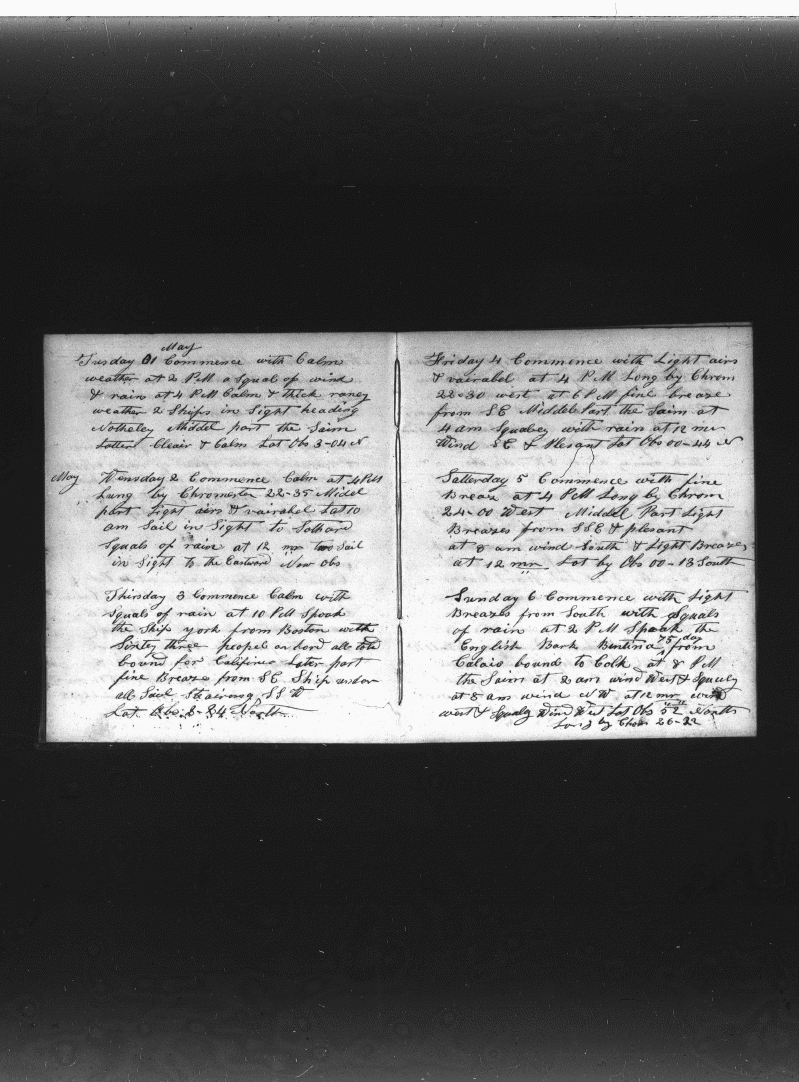 May
Tusday 01 Commence with Calm
weather at 2 P.M a Squal of wind
& rain at 4 P.M Calm & thick raney
weather 2 Ships in Sight heading
Notheley Middel part the Saim
Latter Cleair & Calm Lat Obs 3-04 N
May Wensday 2 Commence Calm at 4 P.M
Lung by Chromester 22-35 Midel
part Light airs & vairabel Lat 10
am Sail in Sight to Sothard
Squals of rain at 12 mr two Sail
in Sight to the Eastward New Obs
Thirsday 3 Commence Calm with
Squals of rain at 10 P.M Spook
the Ship york from Boston with
Sixty three peopel on bord all told
bound for Califineo Later part
fine Breaze from SE Ship under
all Sail Steairing SSW
Lat Obs North
Friday 4 Commence with Light airs
& vairabel at 4 P.M Long by Chrom
22-30 west at 6 P.M fine breaze
from SE Middel Part the Saim at
4 am Squaley with rain at 12 mr
Wind SE & Plesant Lat Obs 00-44 N
Satterday 5 Commence with fine
Breaze at 4 P.M Long by Chrom
24-00 West Middel Part Light
Breazes from SSE & plesant
at 8 am wind South & Light Breazes
at 12 mr Lat by Obs 00-13 South
Sunday 6 Commence with Light
Breazes from South with Squals
of rain at 2 P.M Spook the
English Bark Bentina 75 day from
Calaio bound to Colk at 8 P.M
the Saim at 2 am wind West & Squaley
at 8 am wind NW at 12 mr wind
west & Squaly Wind West Lat Obs 52 North
Long by Chom 26-22